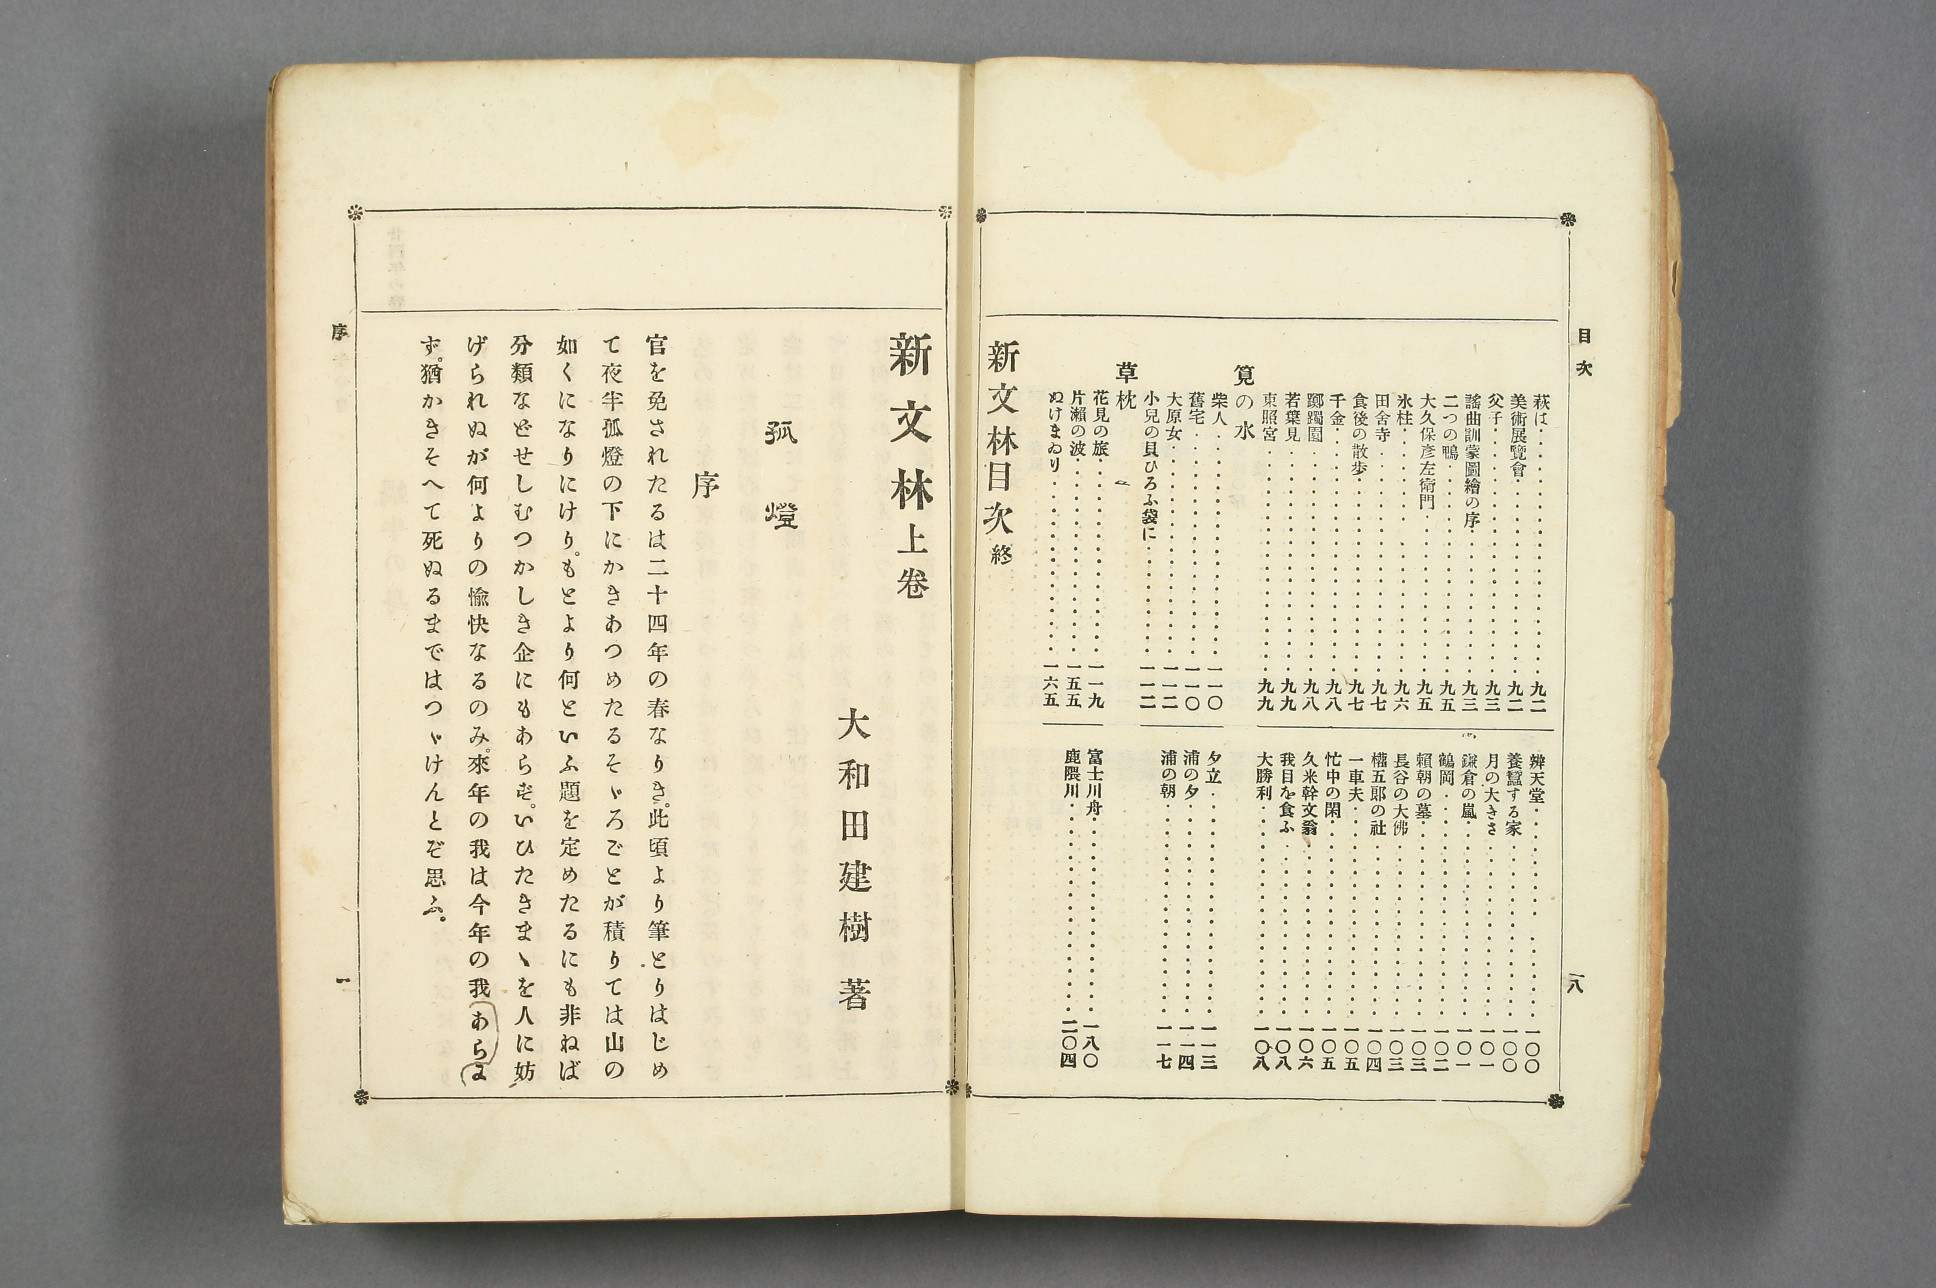 目次
八
萩は 九二
美術展覽會 九二
父子 九三
謠曲訓蒙圖繪の序 九三
二つの鴨 九五
大久保彥左衛門 九五
氷柱 九六
田舍寺 九七
食後の散步 九七
千金 九八
躑躅園 九八
若葉見 九九
東照宮 九九
筧の水
柴人 一一〇
舊宅 一一〇
大原女 一一二
小兒の貝ひろふ袋に 一一二
草枕
花見の旅 一一九
片瀨の波 一五五
ぬけまゐり 一六五
辨天堂 一〇〇
養蠶する家 一〇〇
月の大きさ 一〇一
鎌倉の嵐 一〇一
鶴岡 一〇二
賴朝の墓 一〇三
長谷の大佛 一〇三
權五郞の社 一〇四
一車夫 一〇五
忙中の閑 一〇五
久米幹文翁 一〇六
我目を食ふ 一〇八
大勝利 一〇八
夕立 一一三
浦の夕 一一四
浦の朝 一一七
富士川舟 一八〇
鹿隈川 二〇四
新文林目次終
新文林上卷
大和田建樹著
孤燈
序
官を免されたるは二十四年の春なりき。此頃より筆とりはじめ
て夜半孤燈の下にかきあつめたるそゞろごとが積りては山の
如くになりにけり。もとより何といふ題を定めたるにも非ねば
分類などせしむつかしき企にもあらず。いひたきまゝを人に妨
げられぬが何よりの愉快なるのみ。來年の我は今年の我あらま
ず。猶かきそへて死ぬるまではつゞけんとぞ思ふ。
序
一